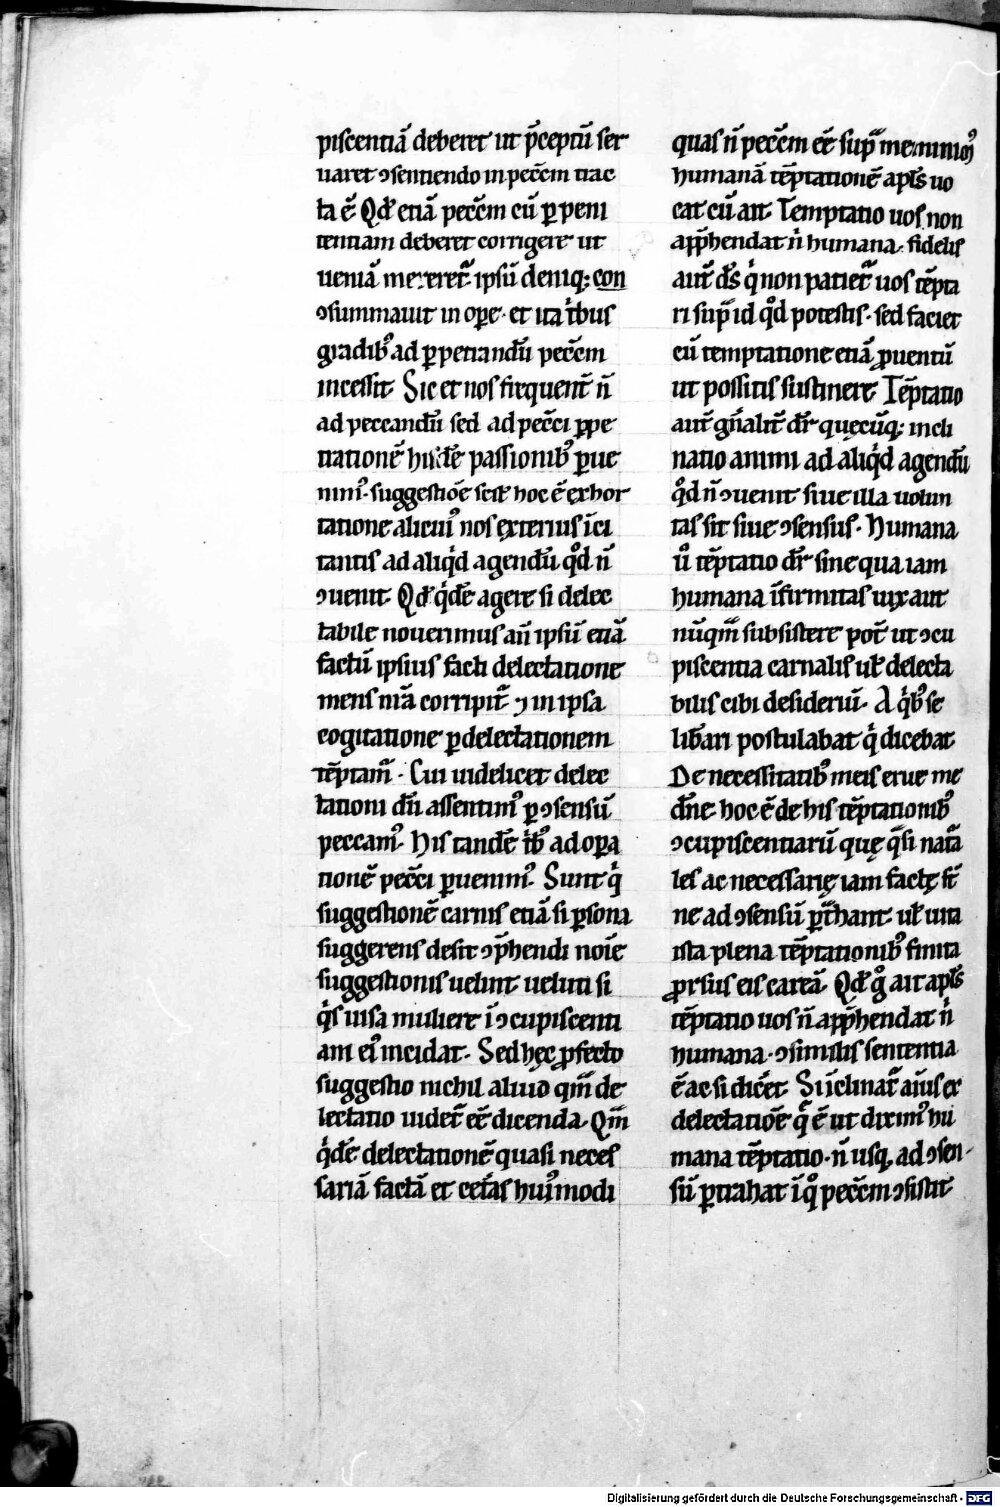 piscentiā deberet ut p̄ceptū ser
uaret ɔsentiendo in pecc̄m trac
ta ē Qd̄ etiā pecc̄m cū ꝑ peni
tentiam deberet corrigere ut
ueniā mereret᷑ ipsū deniq; con
ɔsummauit in oꝑe· et ita tͥbus
gradibꝰ ad ꝑpetrandū pecc̄m
incessit· Sic et nos frequent̄ n̄
ad peccandū sed ad pecc̄i ꝑpe
trationē hisdē passionibꝰ ꝑue
nimꝰ· suggestiōe scił hoc ē exhor
tatione alicuiꝰ nos exterius īci
tantis ad aliqͥd agendū qͦd n̄
ɔuenit· Qd̄ qͥdē agere si delec
tabile nouerimus an̄ ipsū etiā
factū ipsius facti delectatione
mens nr̄a corripit᷑ ⁊ in ipsa
cogitatione ꝑ delectationem
tēptam᷑· Cui uidelicet delec
tationi dū assentimꝰ ꝑ ɔsensū
peccamꝰ· His tandē tͥbꝰ ad oꝑa
tionē pecc̄i ꝑuenimꝰ. Sunt qͥ
suggestionē carnis etiā si ꝑsona
suggerens desit ɔp̄hendi noīe
suggestionis uelint ueluti si
qͥs uisa muliere ī ɔcupiscenti
am eiꝰ incidat· Sed hęc ꝓfecto
suggestio nichil aliud qm̄ de
lectatio uidet᷑ eē dicenda· Qm̄
qͥdē delectationē quasi neces
sariā factā et cet̄as huiꝰmodi
quas n̄ pecc̄m eē sup᷑ meminimꝰ
humanā tēptationē apl̄s uo
cat cū ait· Temptatio uos non
app̄hendat nͥ humana· fidelis
aut̄ d̄s qͥ non patiet᷑ uos tēpta
ri sup᷑ id qͦd potestis· sed faciet
cū temptatione etiā ꝓuentū
ut possitis sustinere Tēptatio
aut̄ gn̄alit̄ dr̄ quęcūq; incli
natio animi ad aliqͥd agendū
qͦd n̄ ɔuenit siue illa uolun
tas sit siue ɔsensus· Humana
uͦ tēptatio dr̄ sine qua iam
humana īfirmitas uix aut
nūqm̄ subsistere pot̄ ut ɔcu
piscentia carnalis uł delecta
bilis cibi desideriū· A qͥbꝰ se
lib̄ari postulabat qͥ dicebat
De necessitatibꝰ meis erue me
dn̄e· hoc ē de his tēptationibꝰ
ɔcupiscentiarū quę qᷓsi nat᷑a
les ac necessarię iam factę st̄
ne ad ɔsensū ꝑt᷑hant· uł uita
ista plena tēptationibꝰ finita
ꝓrsus eis careā· Qd̄ gͦ ait apl̄s
tēptatio uos n̄ app̄hendat nͥ
humana· ɔsimilis sententia
ē ac si dic̄et Si īclinat᷑ aīus ex
delectatiōe qͣ ē ut diximꝰ hu
mana tēptatio· n̄ usq, ad ɔsen-
sū ꝑtrahat ī qͦ pecc̄m ɔsistit
Digitalisierung gefördert durch die Deutsche Forschungsgemeinschaft - DFG